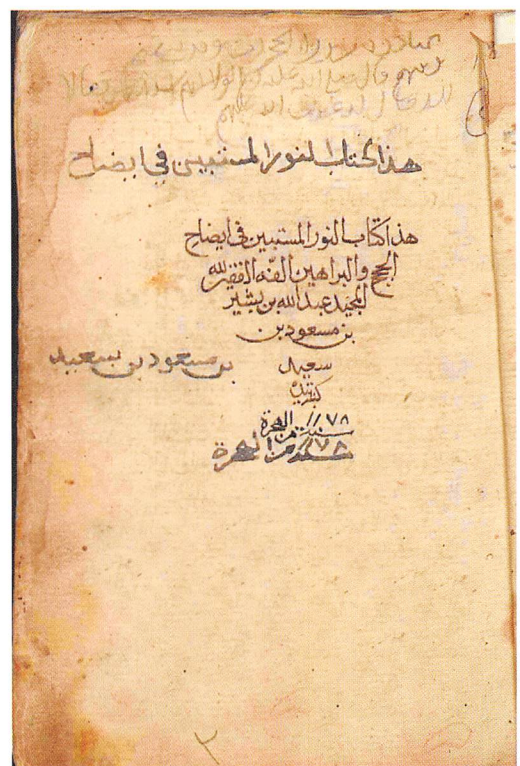 هذا كتاب النور المستبين في ايضاح
هذا كتاب النور المستبين في ايضاح
الحجج والبراهين الفه الفقير لله
المجيد عبدالله بن بشير
بن مسعود بن
سعيد
كتبته
بن مسعود بن سعيد
١١٧٨
سنة من الهجرة
١١٧٨
سنة من الهجرة
٢